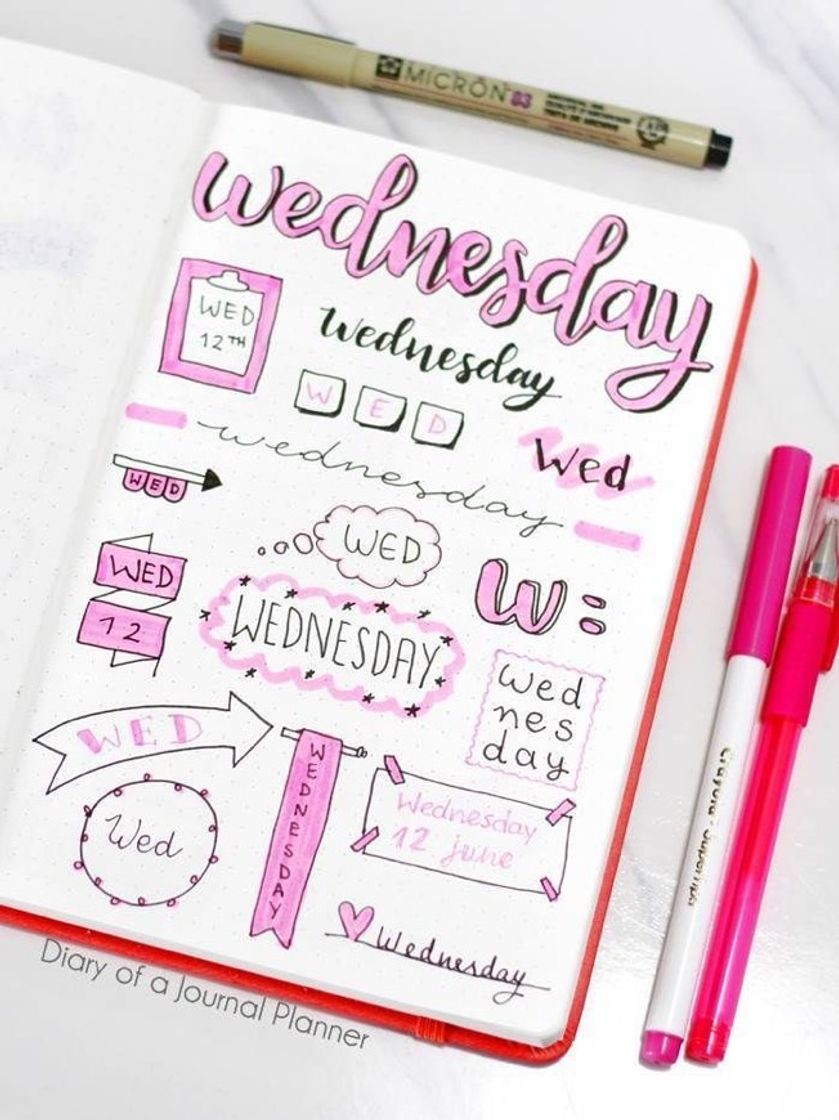 MICRON 03
wednesday
WED
12TH
wednesday
W E D
Wed
wednesday
WED
WED
WED
12
WEDNESDAY
W:
wed
nes
day
WED
WEDNESDAY
Wed
Wednesday
12 june
Wednesday
Crayola SuperTips
Diary of a Journal Planner